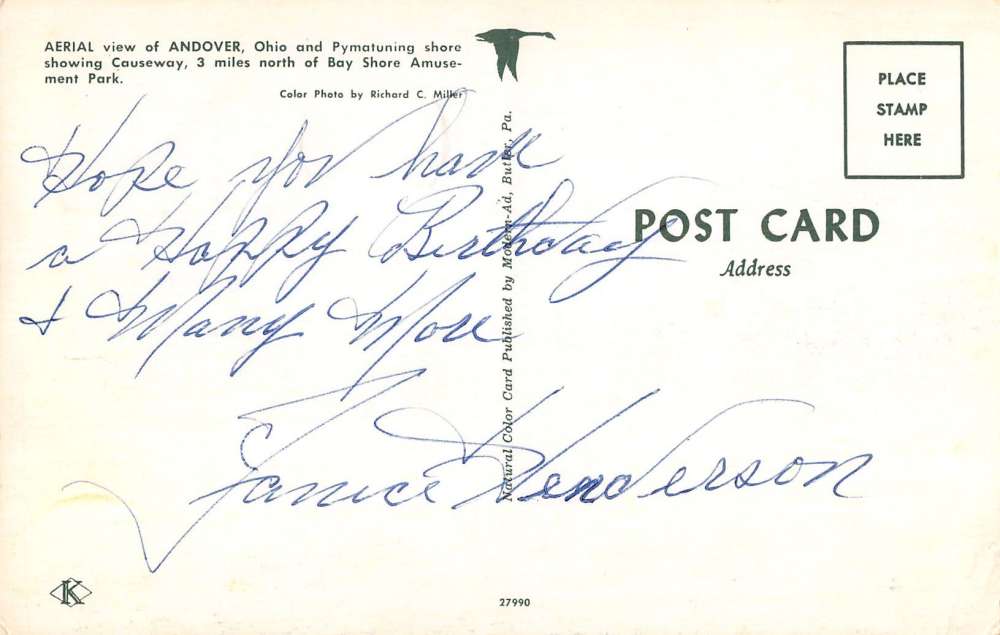 AERIAL view of ANDOVER, Ohio and Pymatuning shore
showing Causeway, 3 miles north of Bay Shore Amuse-
ment Park.
Color Photo by Richard C. Miller
PLACE
STAMP
HERE
Hope you have
a Happy Birthday
& Many More
Janice Henderson
Natural Color Card Published by Modern-Ad, Butler, Pa.
POST CARD
Address
K
27990